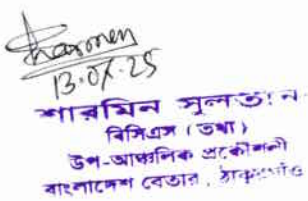 Sharmen
13.07.25
শারমিন সুলতানা
বিসিএস (তথ্য)
উপ-আঞ্চলিক প্রকৌশলী
বাংলাদেশ বেতার, ঠাকুরগাঁও